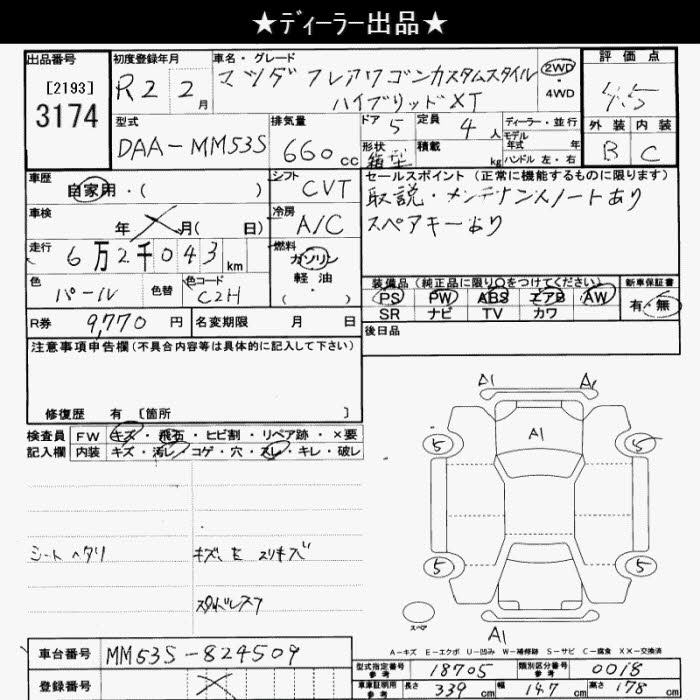 ★ディーラー出品★
出品番号
[2193]
3174
初度登録年月
R2 2月
車名・グレード
マツダ フレアワゴンカスタムスタイル
ハイブリッドXT
2WD
・
4WD
評価点
4.5
外装 内装
B C
型式
DAA-MM53S
排気量
660cc
ドア 5
定員 4人
形状 箱型
積載 kg
ディーラー・並行
モデル年式 年
ハンドル 左・右
車歴
自家用・( )
シフト
CVT
車検
年 ✕ 月( 日)
冷房
A/C
走行
6万2千043km
燃料
ガソリン
軽油
( )
色
パール
色替
色コード
C2H
R券 9,770円
名変期限 月 日
セールスポイント(正常に機能するものに限ります)
取説・メンテナンスノートあり
スペアキーあり
装備品(純正品に限り○をつけてください)
PS PW ABS エアB AW
SR ナビ TV カワ
新車保証書
有・無
後日品
注意事項申告欄(不具合内容等は具体的に記入して下さい)
修復歴 有 〔箇所 〕
検査員
記入欄
FW キズ・飛石・ヒビ割・リペア跡・×要
内装 キズ・汚レ・コゲ・穴・スレ・キレ・破レ
シートヘタリ
スタッドレス7
A1 A1
A1
5 5
5 5
スペア
A1
A-キズ E-エクボ U-凹み W-補修跡 S-サビ C-腐食 XX-交換済
車台番号 MM53S-824509
登録番号 ✕
型式指定番号 参考 18705
類別区分番号 参考 0018
車庫証明用 参考 長さ 339cm 幅 147cm 高さ 178cm